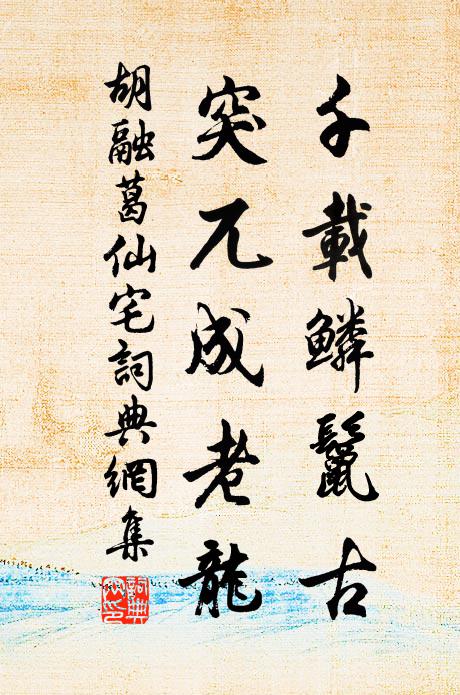 千載鱗鬣古
突兀成老龍
胡融葛仙宅詞典網集